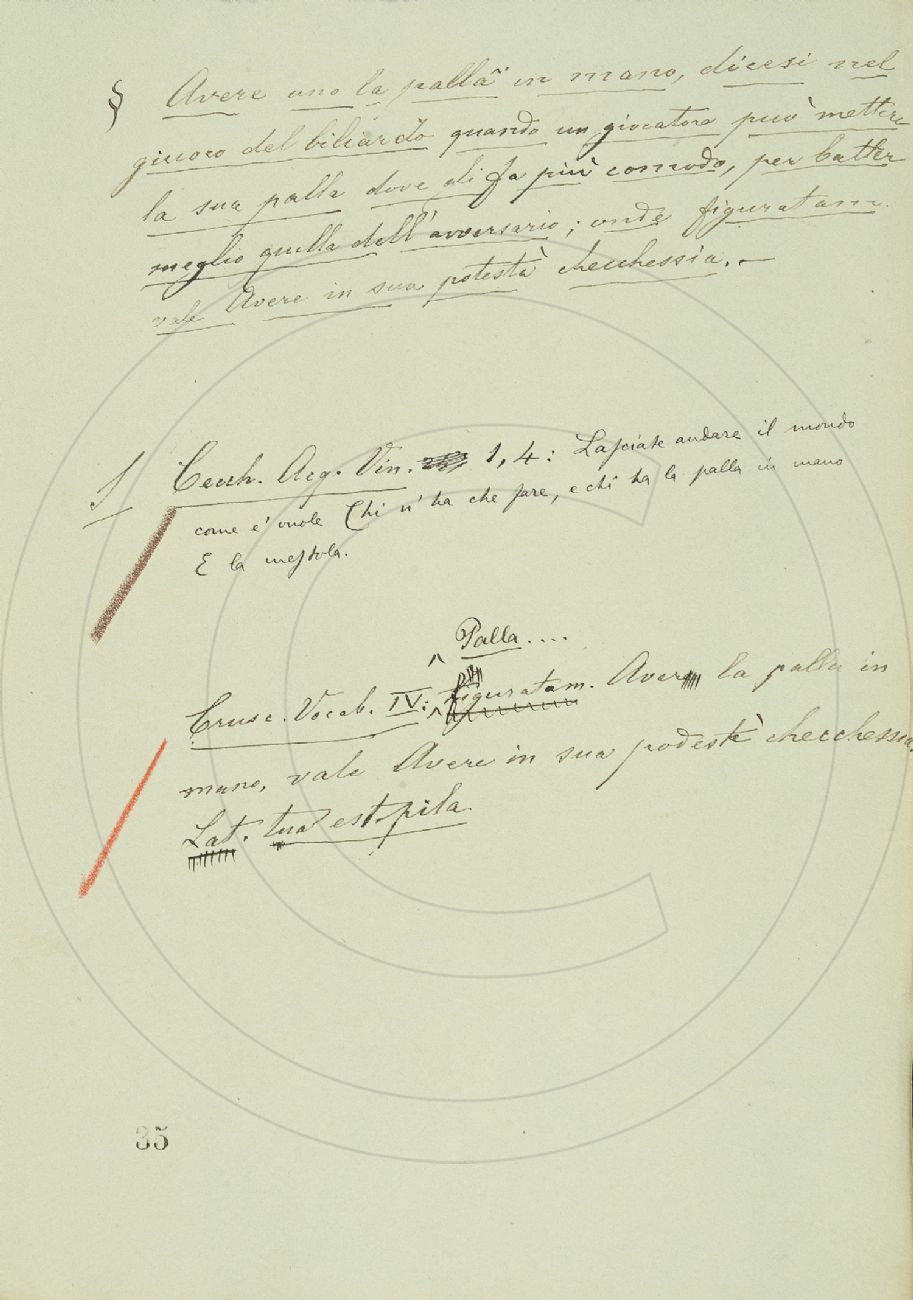 § Avere uno la palla in mano, dicesi nel
giuoco del biliardo quando un giocatore può mettere
la sua palla dove gli fa più comodo, per batter
meglio quella dell'avversario; onde figuratam.
vale Avere in sua potestà checchessia. —
S Cecch. Acq. Vin. 1, 4: Lasciate andare il mondo
come e' vuole Chi n' ha che fare, e chi ha la palla in mano
E la mestola.
Palla ....
Crusc. Vocab. IV: figuratam. Avere la palla in
mano, vale Avere in sua podestà checchessia.
Lat. tua est pila.
35